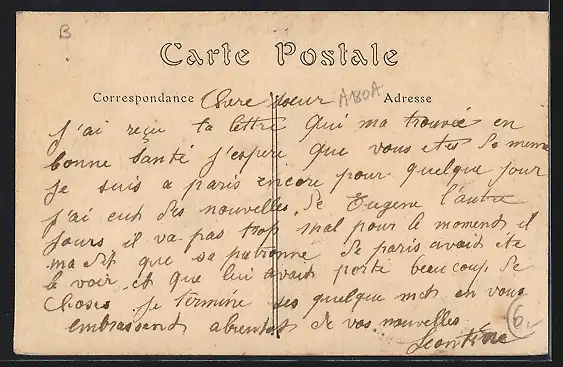 B
Carte Postale
Correspondance Chere soeur A180A Adresse
J'ai reçu ta lettre qui ma trouvée en
bonne santé j'espere que vous etes de meme
je suis a paris encore pour quelque jour
j'ai eut des nouvelles de Eugene l'autre
jours il va pas trop mal pour le moment il
ma dit que sa patronne de paris avait été
le voir et que lui avait porté beaucoup de
choses je termine ses quelque mot en vous
embrassent a bientot de vos nouvelles
Leontine
6.